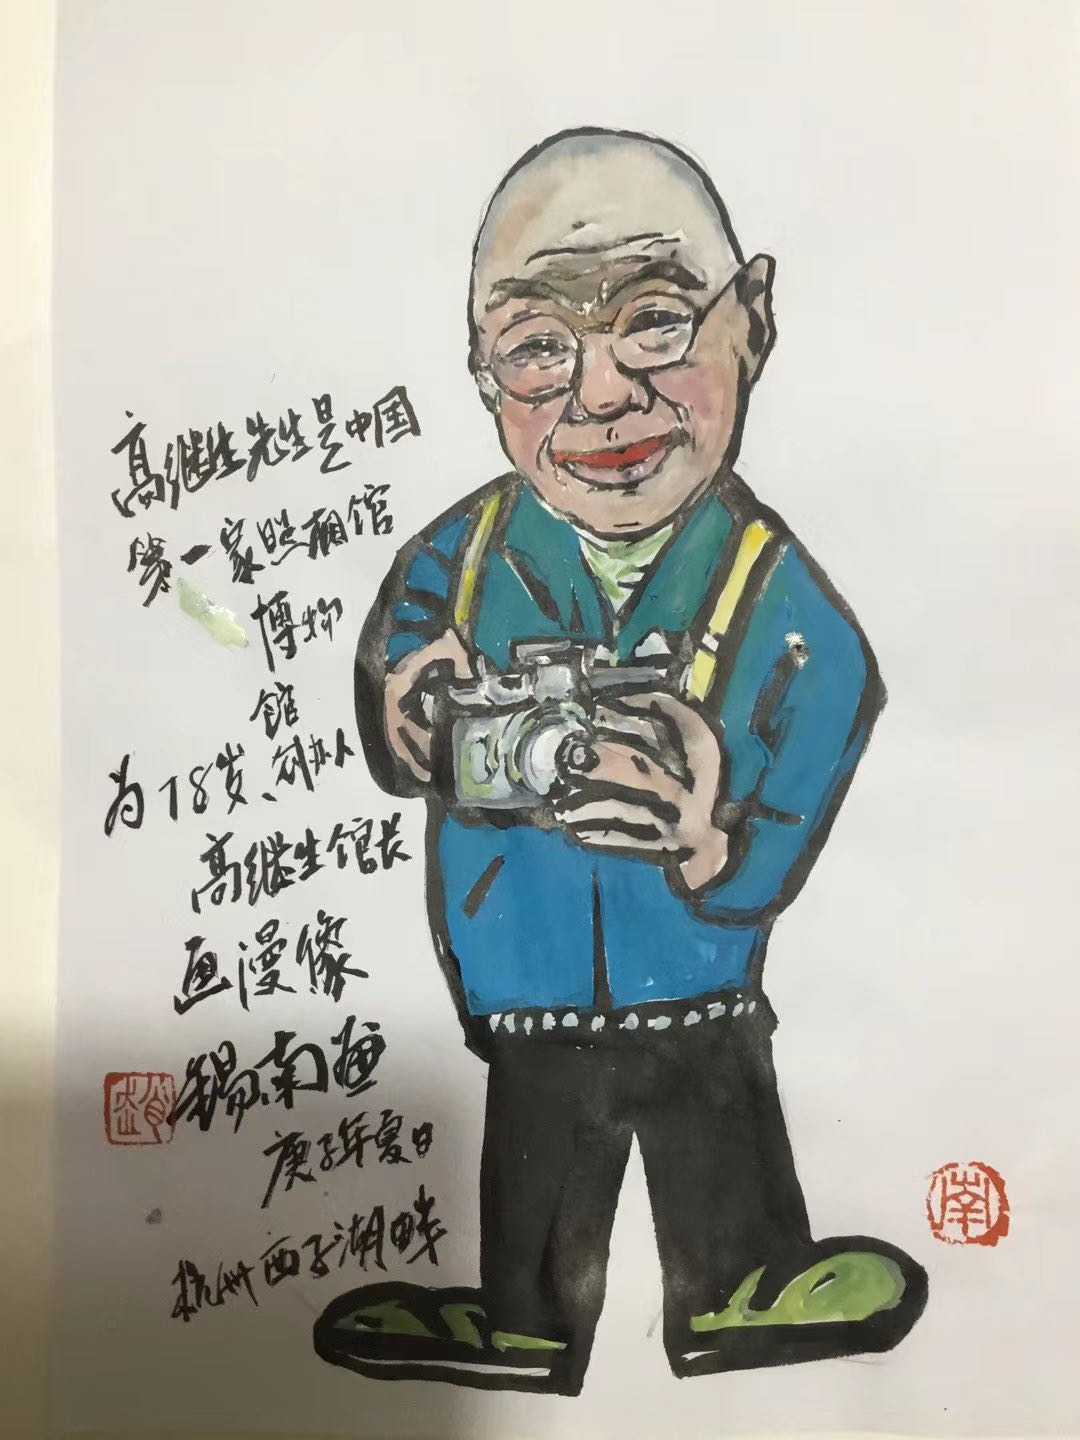 高继生先生是中国
第一家照相馆
博物
馆
为78岁、创办人
高继生馆长
画漫像
锡南画
庚子年夏日
杭州西子湖畔
南